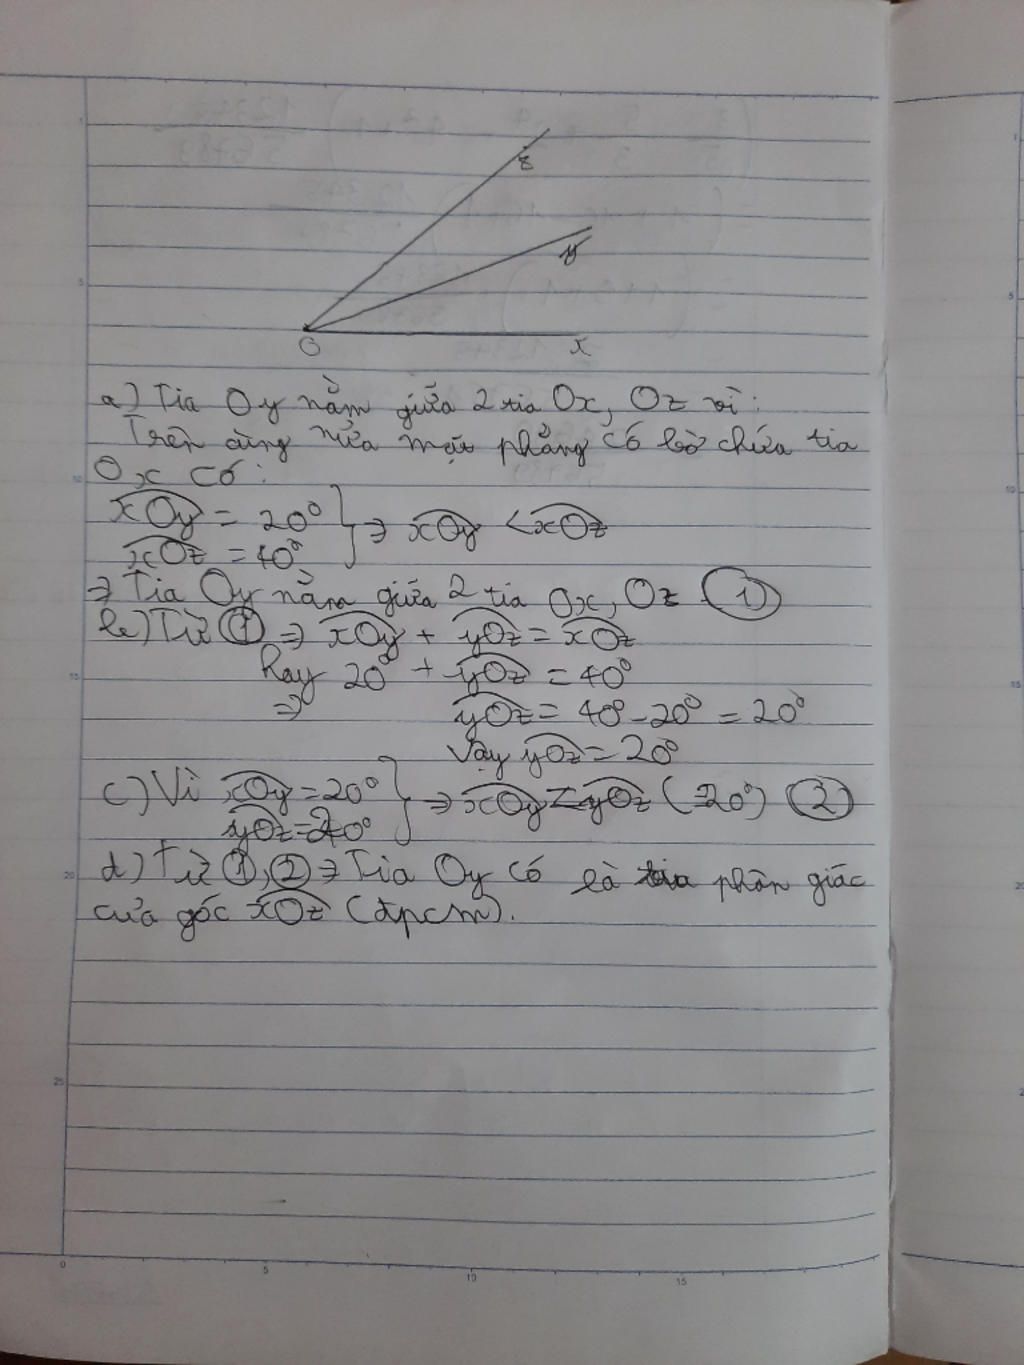 z
y
O
x
a) Tia Oy nằm giữa 2 tia Ox, Oz vì:
Trên cùng nửa mặt phẳng có bờ chứa tia
Ox có:
xOy = 20°
xOz = 40°
} ⇒ xOy < xOz
⇒ Tia Oy nằm giữa 2 tia Ox, Oz (1)
b) Từ (1) ⇒ xOy + yOz = xOz
Hay 20° + yOz = 40°
⇒ yOz = 40° - 20° = 20°
Vậy yOz = 20°
c) Vì xOy = 20°
yOz = 20°
} ⇒ xOy = yOz (=20°) (2)
d) Từ (1), (2) ⇒ Tia Oy có là tia phân giác
của góc xOz (đpcm).